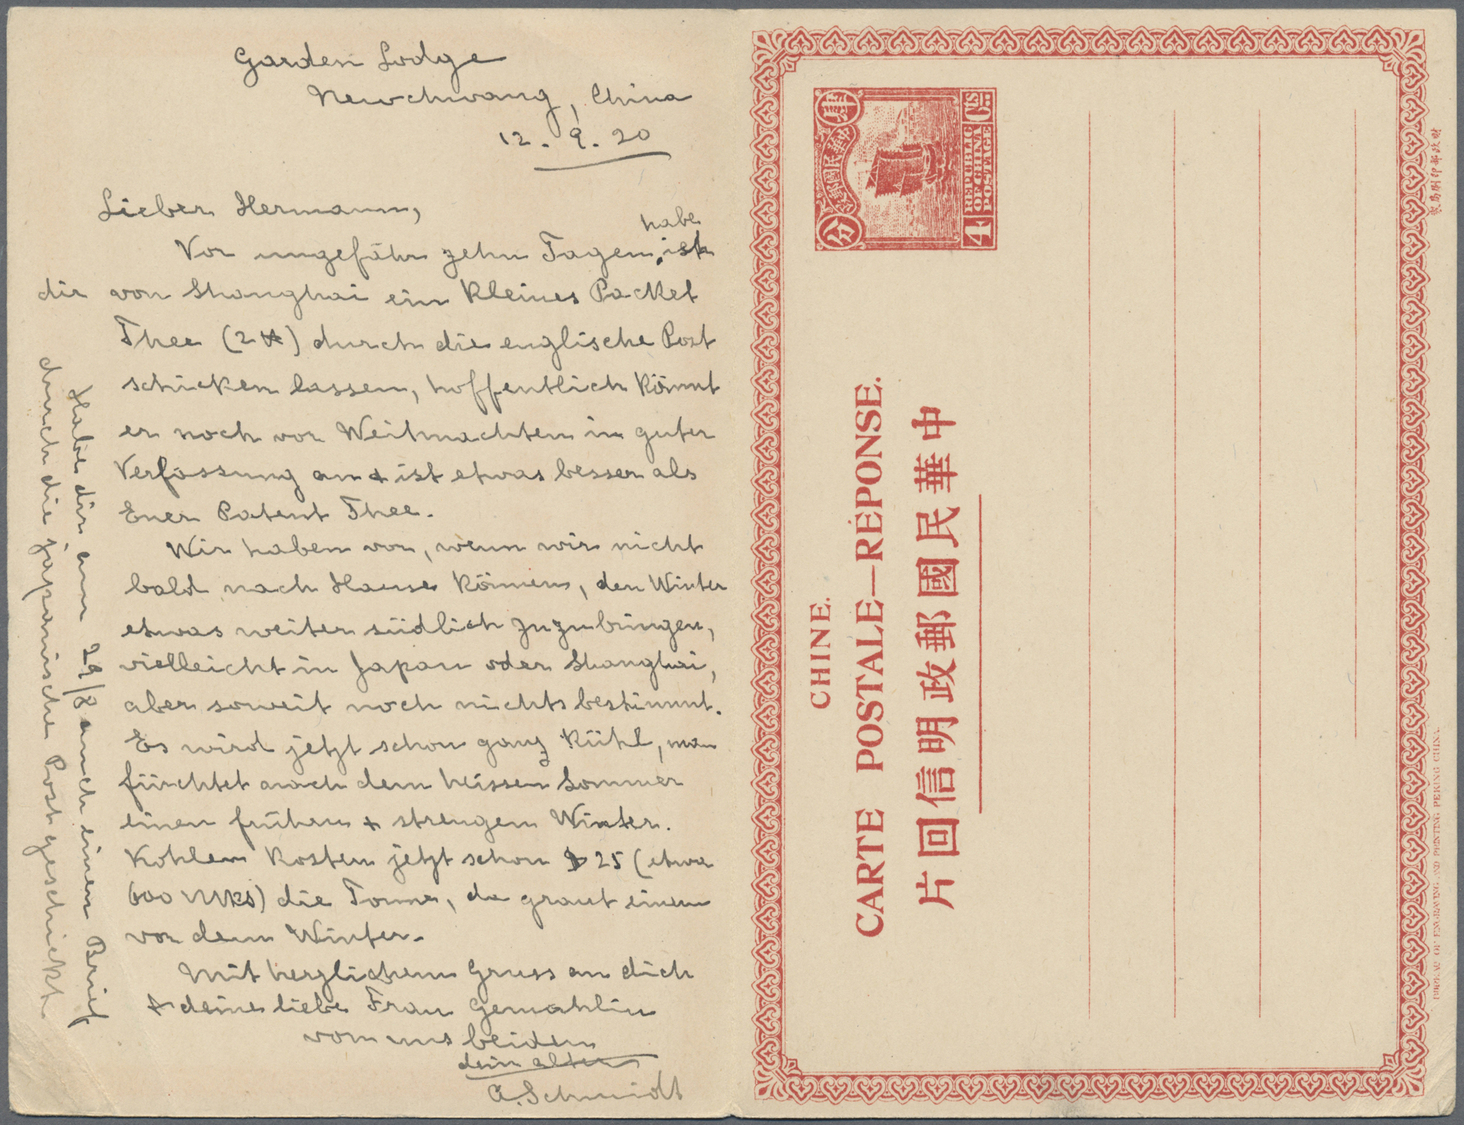 Garden Lodge
Newchwang, China
12. 9. 20
Lieber Hermann,
habe
Vor ungefähr zehn Tagen, ich
dir von Shanghai ein kleines Packet
Thee (2 ℔) durch die englische Post
schicken lassen, hoffentlich kömmt
er noch vor Weihnachten in guter
Verfassung an & ist etwas besser als
Euer Patent Thee.
Wir haben vor, wenn wir nicht
bald nach Hause können, den Winter
etwas weiter südlich zuzubringen,
vielleicht in Japan oder Shanghai,
aber soweit noch nichts bestimmt.
Es wird jetzt schon ganz kühl, man
fürchtet nach dem heissen Sommer
einen frühen & strengen Winter.
Kohlen kosten jetzt schon $ 25 (etwa
600 Mks) die Tonne, da graut einem
vor dem Winter.
Mit herzlichem Gruss an dich
& deine liebe Frau Gemahlin
von uns beiden
dein alter
A. Schmidt
Habe dir am 29/8 auch einen Brief
durch die japanische Post geschickt
CHINE.
CARTE POSTALE—RÉPONSE.
中華民國郵政明信回片
中華民國郵政
肆
分
4
CTS
REPUBLIC
OF CHINA
POSTAGE
財政部印刷局製
BUREAU OF ENGRAVING AND PRINTING PEKING CHINA.